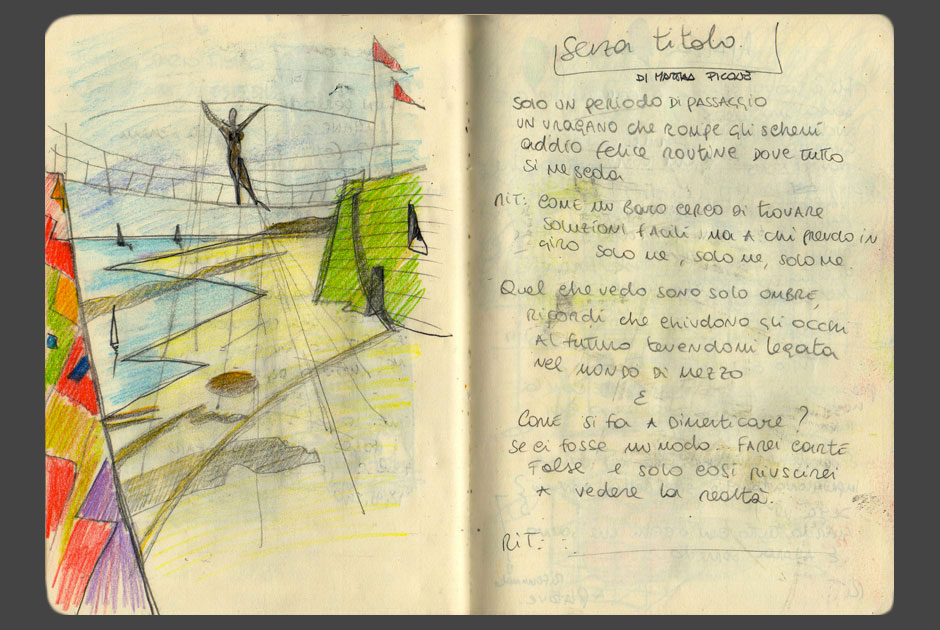 senza titolo.
DI MARTINA
SOLO UN PERIODO DI PASSAGGIO
UN URAGANO CHE ROMPE GLI SCHEMI
ADDIO FELICE ROUTINE DOVE TUTTO
SI
RIT: COME UN BARO CERCO DI TROVARE
SOLUZIONI FACILI, MA A CHI PRENDO IN
GIRO SOLO ME, SOLO ME, SOLO ME
QUEL CHE VEDO SONO SOLO OMBRE,
RICORDI CHE CHIUDONO GLI OCCHI
AL FUTURO TENENDOMI LEGATA
NEL MONDO DI MEZZO
E
COME SI FA A DIMENTICARE?
SE CI FOSSE UN MODO... FAREI CARTE
FALSE E SOLO COSÌ RIUSCIREI
A VEDERE LA REALTÀ.
RIT: